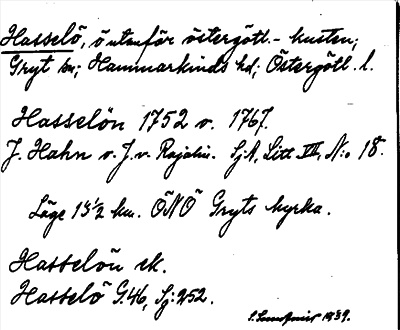 Hasselö, ö utanför östergötl.-kusten;
Gryt sn; Hammarkinds hd; Östergötl. l.
Hasselön 1752 o. 1767.
J. Hahn o. J. v. Rajalin. SjA, Litt. VII, N:o 18.
Läge 13 1/2 km. ÖNÖ Gryts kyrka.
Hasselön ek.
Hasselö G.46, Sj: 252.
1939.